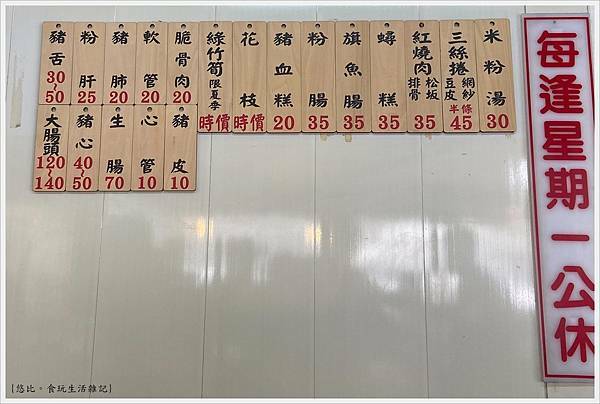 米粉湯 30
三絲捲 豆皮 網紗 半條 45
紅燒肉 排骨 松坂 35
蟳糕 35
旗魚腸 35
粉腸 35
豬血糕 20
花枝 時價
綠竹筍 限夏季 時價
脆骨肉 20
軟管 20
豬肺 20
粉肝 25
豬舌 30~50
豬皮 10
心管 10
生腸 70
豬心 40~50
大腸頭 120~140
每逢星期一公休
[悠比。食玩生活雜記]